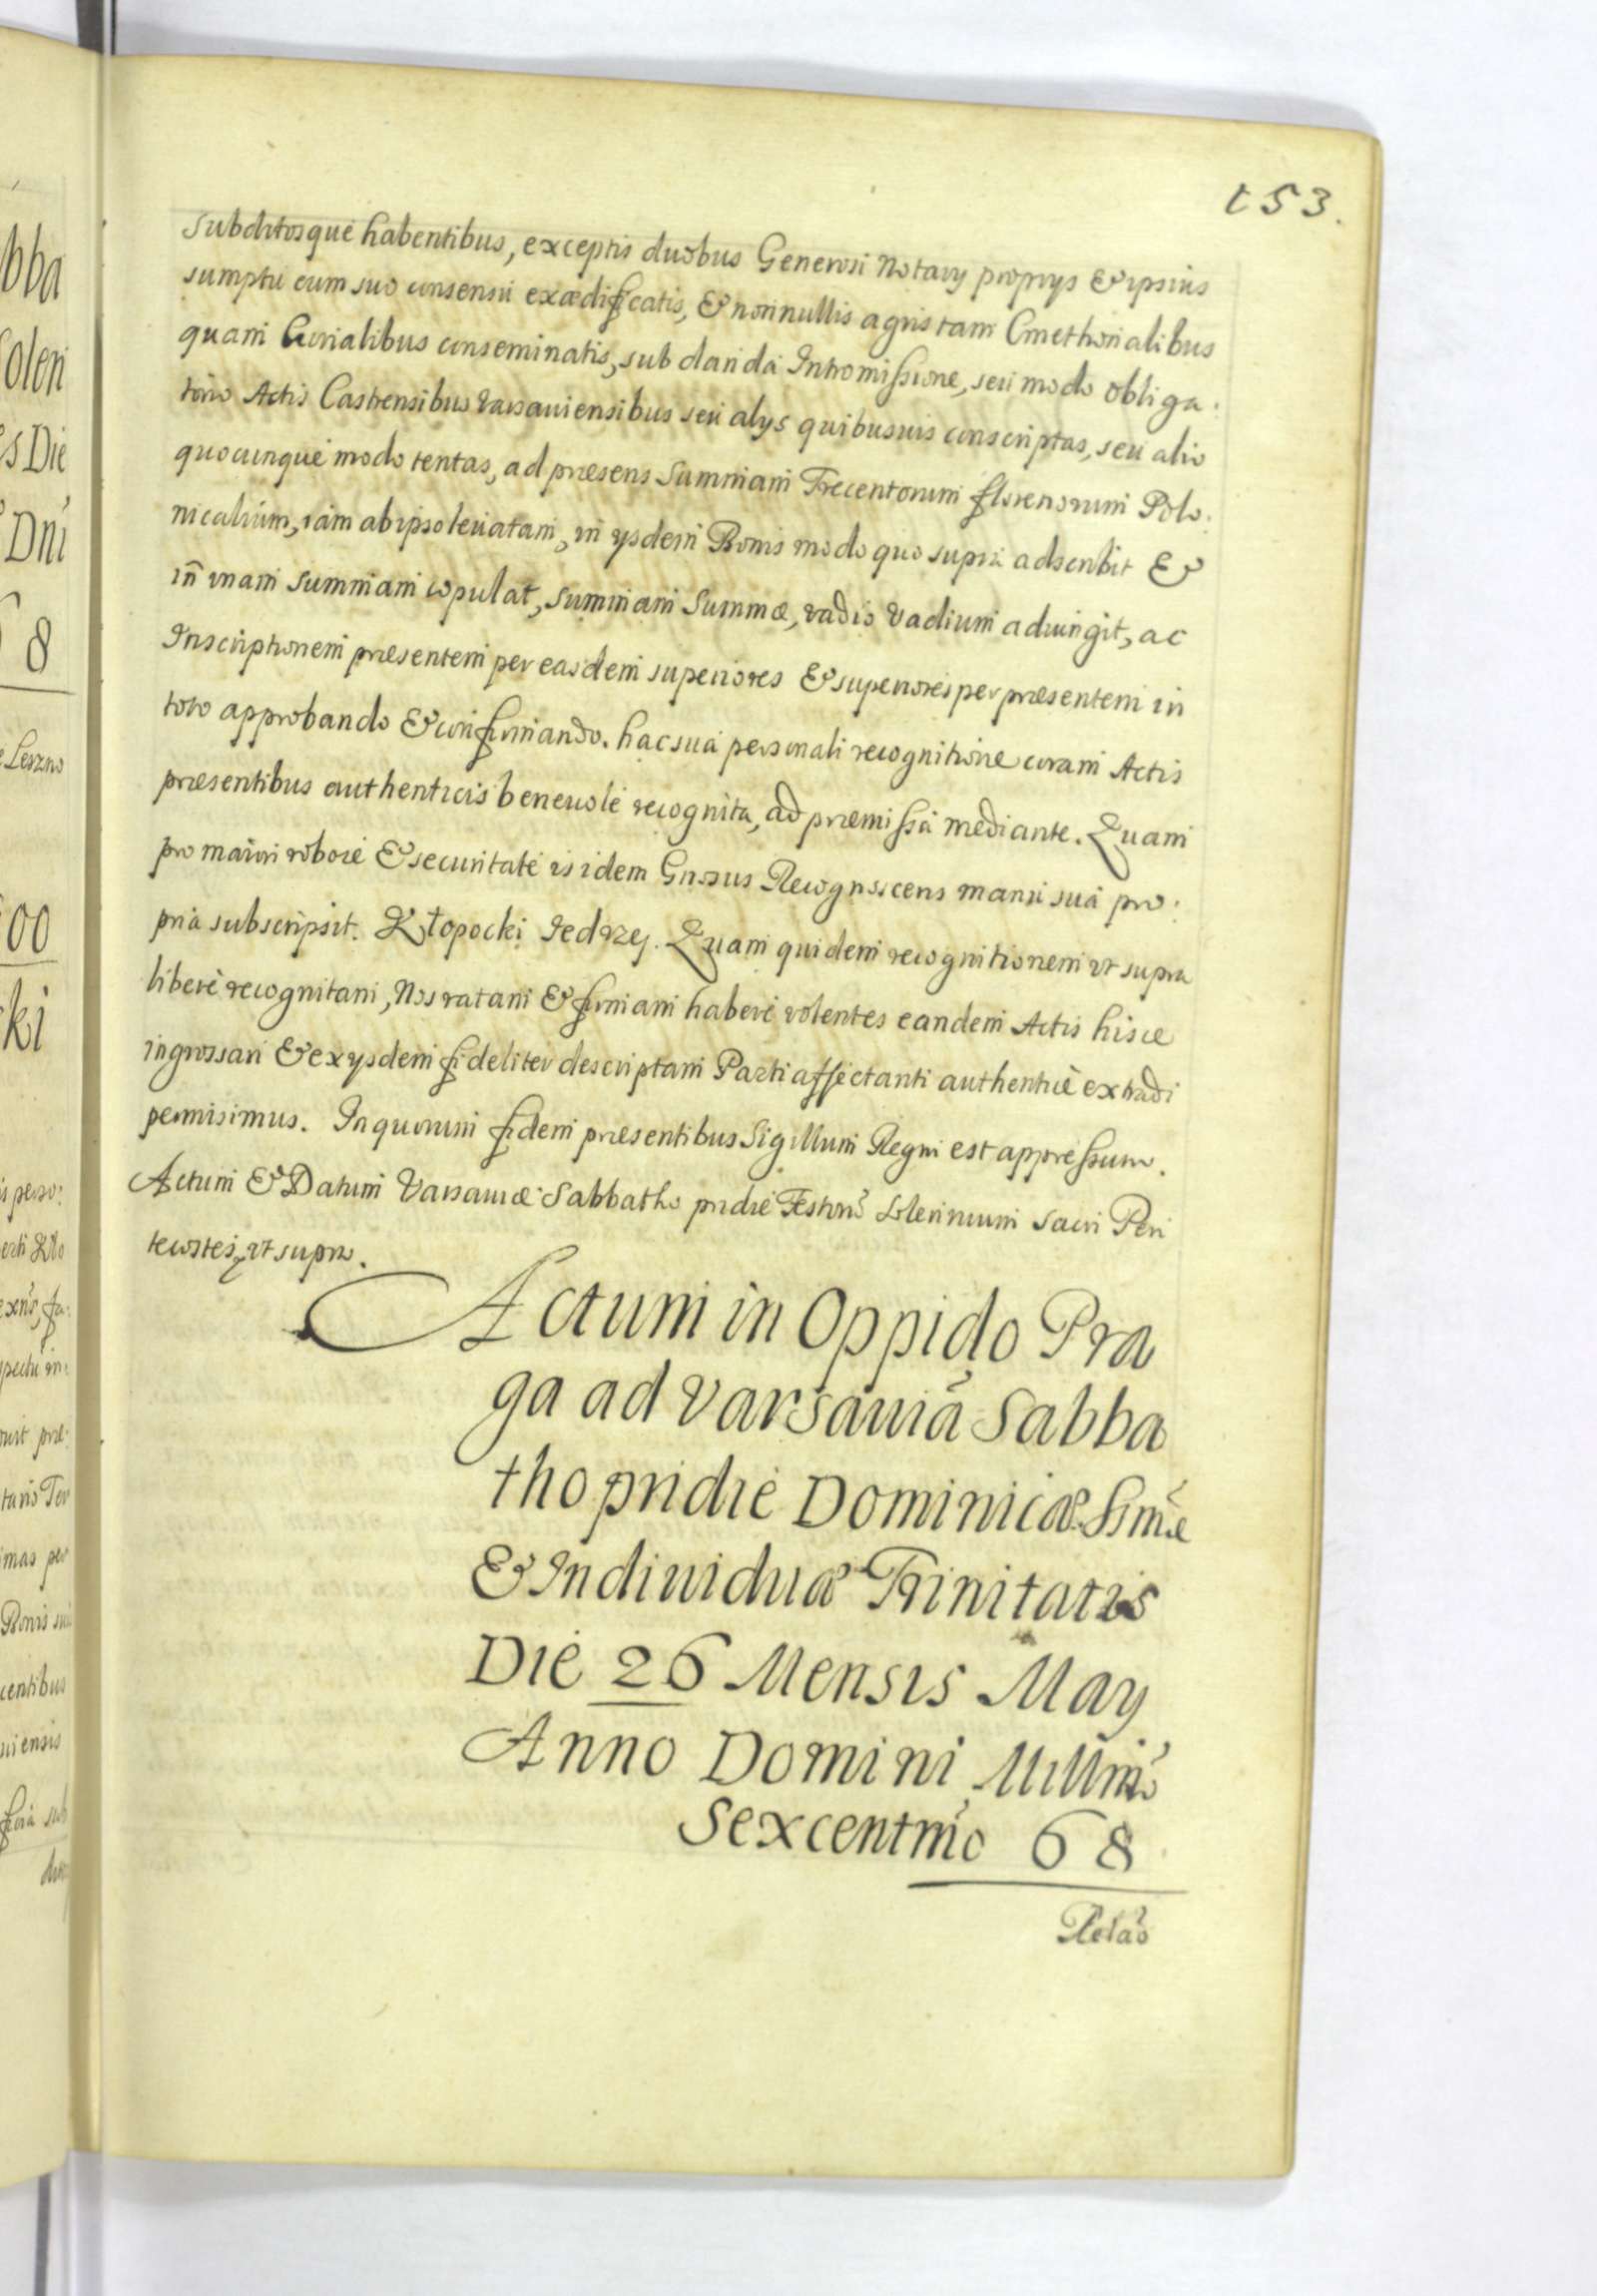 153.
Subditosque habentibus, exceptis duobus Generosi Notarij proprijs & ipsius
sumptu cum suo consensu exædificatis, & nonnullis agris tam Cmethonalibus
quam Curialibus conseminatis, sub danda Intromissione, seu modo obliga:
torio Actis Castrensibus Varsauiensibus seu alijs quibusuis conscriptas, seu alio
quocunque modo tentas, ad præsens Summam Trecentorum florenorum Polo:
nicalium, iam ab ipso leuatam, in ijsdem Bonis modo quo supra adscribit &
in vnam summam copulat, summam Summæ, vadio Vadium adiungit, ac
Inscriptionem præsentem per easdem superiores & superiores per præsentem in
toto approbando & confirmando. hac sua personali recognitione coram Actis
præsentibus authenticis beneuole recognita, ad præmissa mediante. Quam
pro maiori robore & securitate is idem Gnosus Recognoscens manu sua pro:
pria subscripsit. Kłopocki Jedrzej. Quam quidem recognitionem vt supra
libere recognitam, Nos ratam & firmam habere volentes eandem Actis hisce
ingrossari & ex ijsdem fideliter descriptam Parti affectanti authentice extradi
permisimus. In quorum fidem præsentibus Sigillum Regni est appressum.
Actum & Datum Varsauiæ Sabbatho pridie Festor̃ solennium sacri Pen
tecostes, vt supra.
Actum in Oppido Pra
ga ad Varsauiã Sabba
tho pridie Dominicæ Ssmæ
& Indiuiduæ Trinitatis
Die 26 Mensis Maij
Anno Domini Millmo
Sexcentmo 68
Relão
bba
olen
s Die
Dni
68
Leszno
00
ki
centibus
uiensis